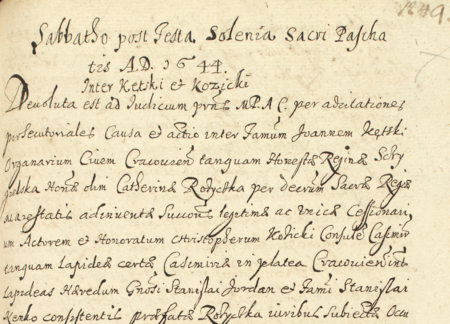 1649.
Sabbatho post Festa Solenia Sacri Pascha
tis A.D. 1644.
Inter Kętski et Kozicki
Devoluta est ad Iudicium prns M.P.A.C. per adcitationes
persecutoriales Causa et actio inter Famum Joannem Kętski
Organarium Civem Cracovien tanquam Honestæ Reginæ
Honæ olim Catherinæ Rożycska per decrum Sacræ Regæ
adinventæ legitimæ ac unicæ Cessionari
um Actorem et Honoratum Christopherum Kozicki Consulē Casimir
tanquam Lapideæ certæ Casimiriæ in platea Cracovien int
Lapideas Hæredum Gnosi Stanislai Jordan et Fami Stanislai
consistentis præfatæ Rożycska iuribus subiectæ